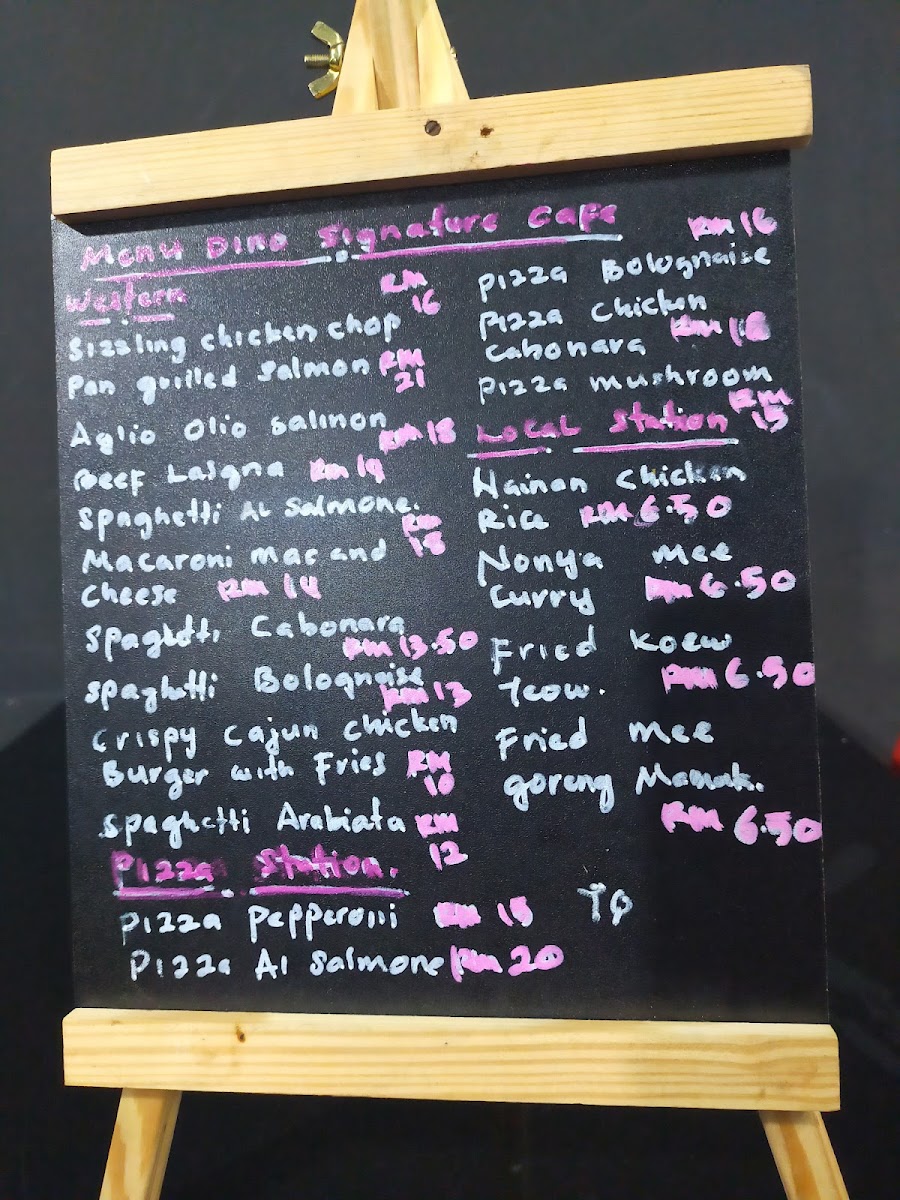 Menu Dino Signature Cafe
Western
RM
16
Sizzling chicken chop
Pan grilled Salmon RM
21
Aglio Olio Salmon
RM 18
Beef Lasigna RM 19
Spaghetti Al Salmone.
RM
18
Macaroni mac and
Cheese RM 14
Spaghetti Cabonara
RM 13.50
Spaghetti Bolognaise
RM 13
Crispy Cajun Chicken
Burger with Fries RM
10
Spaghetti Arabiata RM
12
Pizza Station.
Pizza Pepperoni RM 15
Pizza Al Salmone RM 20
RM 16
Pizza Bolognaise
Pizza Chicken
Cabonara RM 18
Pizza mushroom
RM
15
Local Station
Hainan Chicken
Rice RM 6.50
Nonya mee
Curry RM 6.50
Fried Koew
Teow. RM 6.50
Fried mee
goreng Mamak.
RM 6.50
TQ